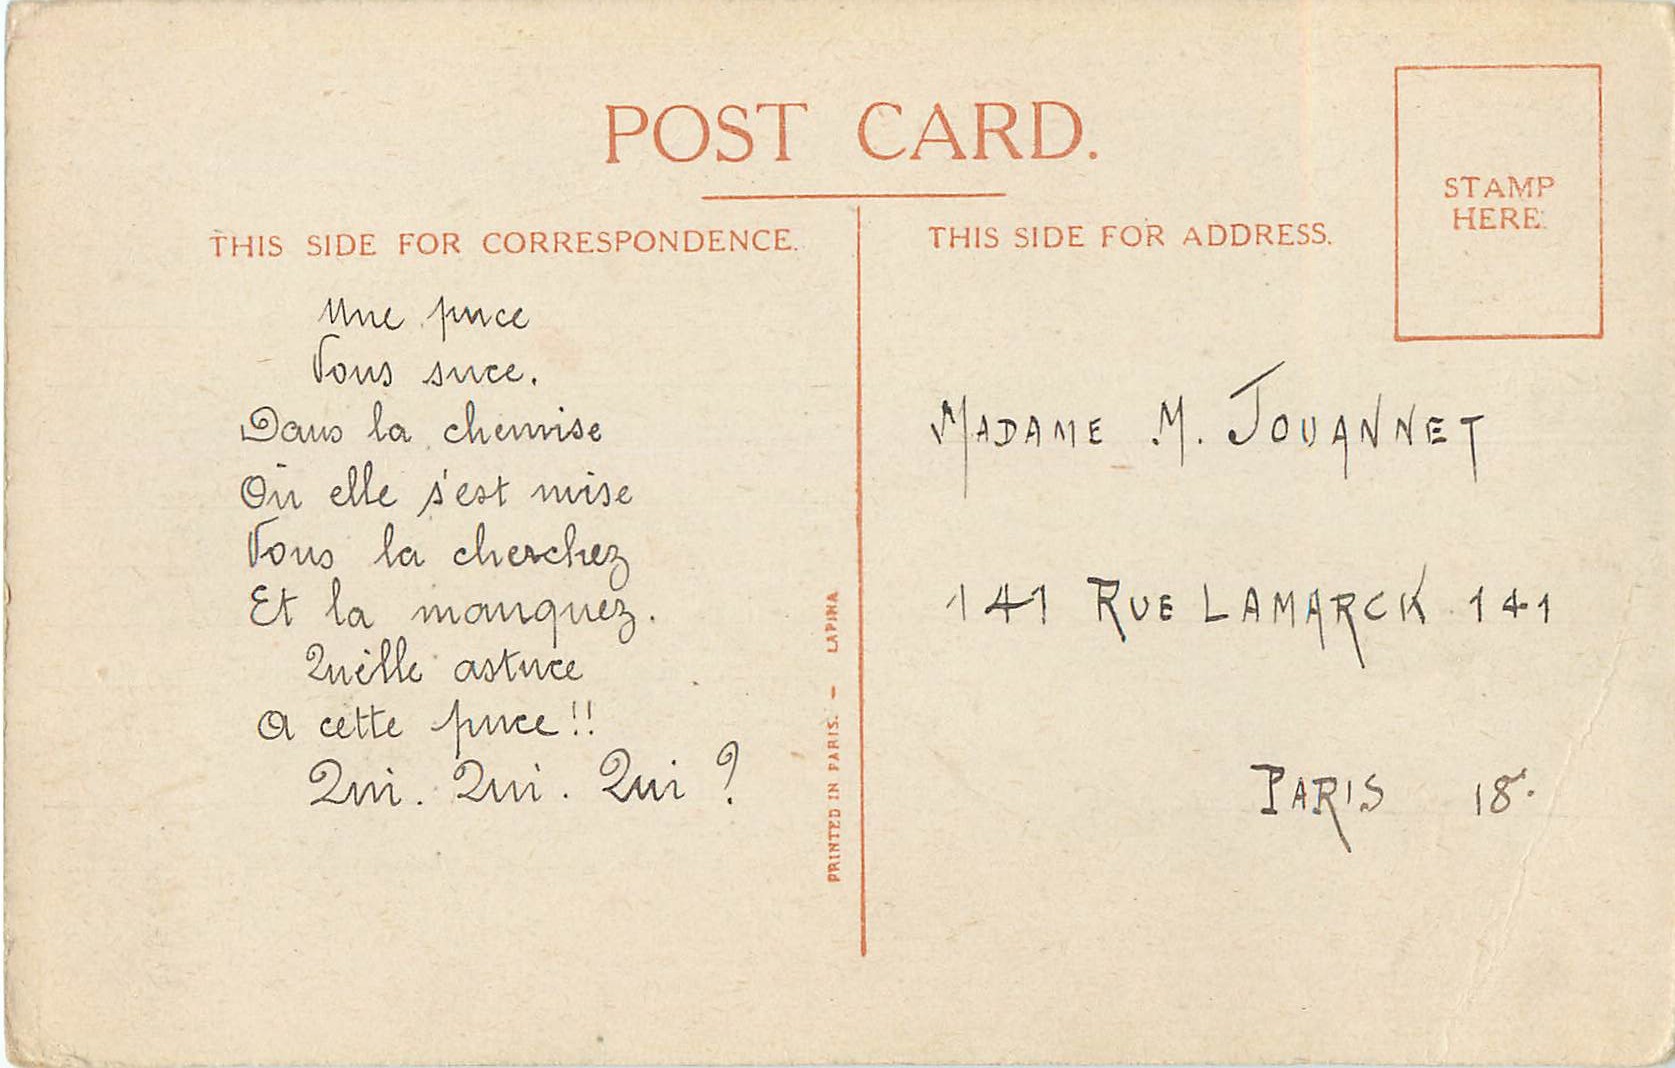 POST CARD.
THIS SIDE FOR CORRESPONDENCE.
Une puce
Vous suce.
Dans la chemise
Où elle s'est mise
Vous la cherchez
Et la manquez.
Quelle astuce
A cette puce!!
Qui. Qui. Qui ?
PRINTED IN PARIS. — LAPINA
THIS SIDE FOR ADDRESS.
STAMP
HERE.
MADAME M. JOUANNET
141 RUE LAMARCK 141
PARIS 18e